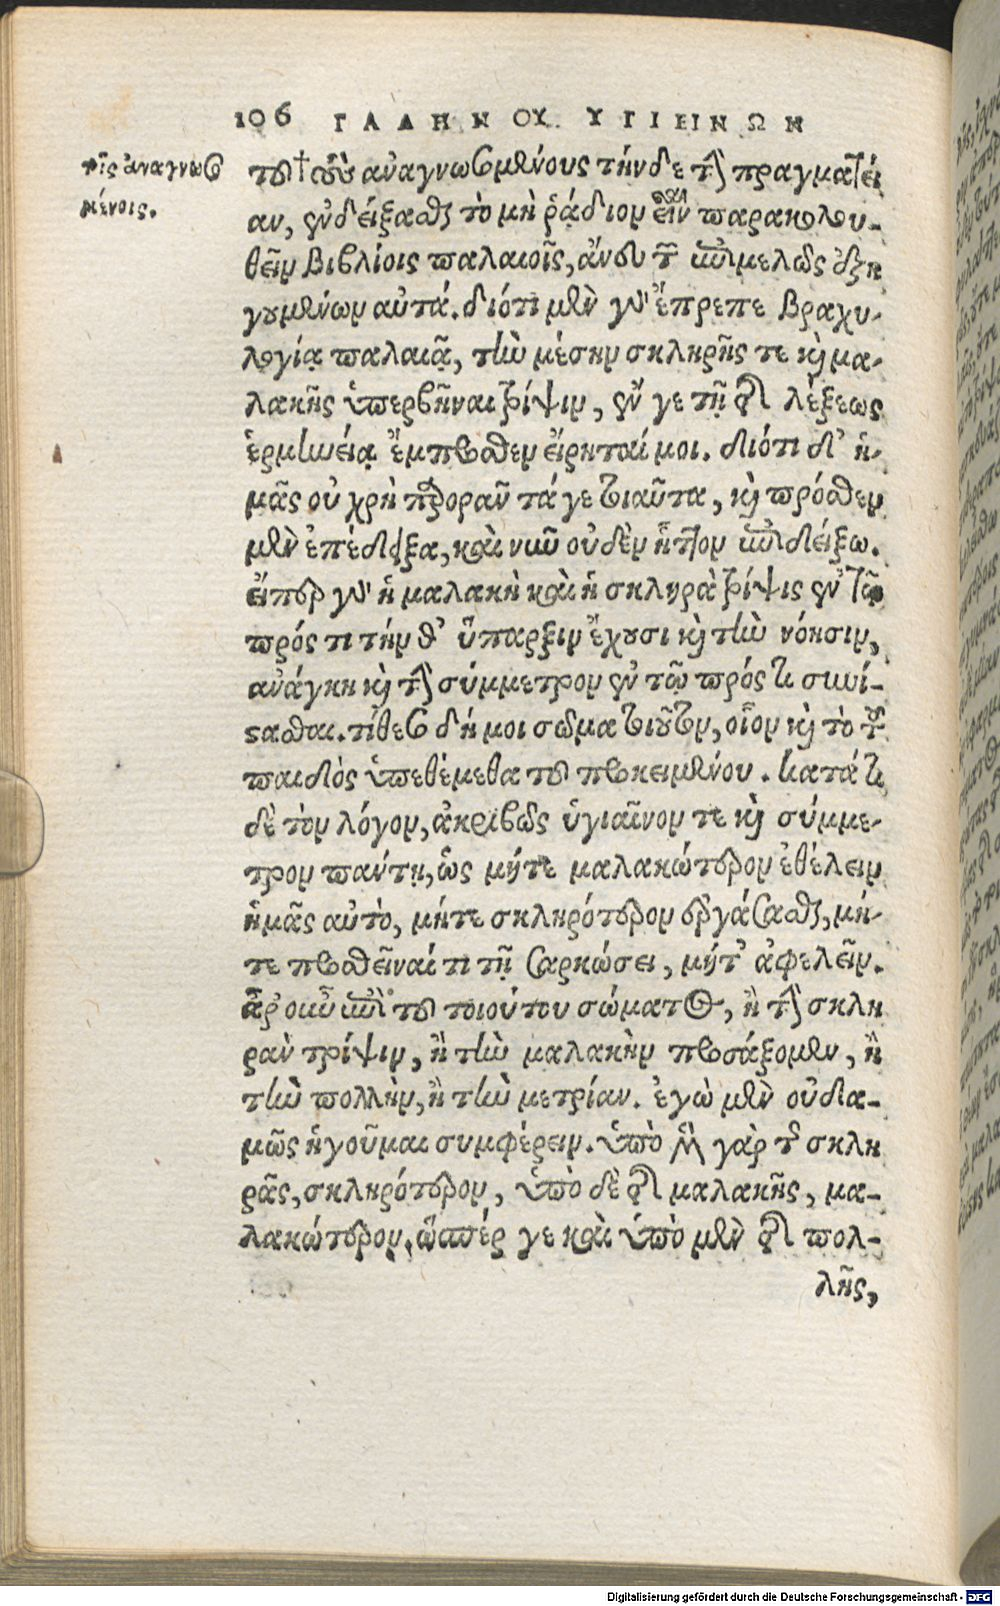 106 ΓΑΛΗΝΟΥ ΥΓΙΕΙΝΩΝ
τοῖς ἀναγνωσ
μένοις.
του † τοὺς ἀναγνωσομένους τήνδε τὴν πραγματεί
αν, ἐνδείξασθαι τὸ μὴ ῥᾴδιον εἶναι παρακολου-
θεῖν βιβλίοις παλαιοῖς, ἄνευ τῶν ἐπιμελῶς ἐξη
γουμένων αὐτά. διότι μὲν γὰρ ἔπρεπε βραχυ-
λογίᾳ παλαιᾷ, τὴν μέσην σκληρῆς τε καὶ μα-
λακῆς ὑπερβῆναι τρίψιν, ἐν γε τῇ τῆς λέξεως
ἑρμηνείᾳ ἔμπροσθεν εἴρηταί μοι. διότι δ' ἡ-
μᾶς οὐ χρὴ παρορᾶν τά γε τοιαῦτα, καὶ πρόσθεν
μὲν ἐπέδειξα, καὶ νῦν οὐδὲν ἧττον ἐπιδείξω.
εἴπερ γὰρ ἡ μαλακὴ καὶ ἡ σκληρὰ τρίψις ἐν τῷ
πρός τι τήν θ' ὕπαρξιν ἔχουσι καὶ τὴν νόησιν,
ἀνάγκη καὶ τὴν σύμμετρον ἐν τῷ πρός τι συνί-
στασθαι. τίθεσο δή μοι σῶμα τοιοῦτον, οἷον καὶ τὸ τοῦ
παιδὸς ὑπεθέμεθα τοῦ προκειμένου. κατά τε
δὲ τὸν λόγον, ἀκριβῶς ὑγιαῖνον τε καὶ σύμμε-
τρον πάντῃ, ὡς μήτε μαλακώτερον ἐθέλειν
ἡμᾶς αὐτὸ, μήτε σκληρότερον ἐργάσασθαι, μή-
τε προσθεῖναί τι τῇ σαρκώσει, μήτ' ἀφελεῖν.
ἆρ' οὖν ἐπὶ τοῦ τοιούτου σώματος, ἢ τὴν σκλη
ρὰν τρίψιν, ἢ τὴν μαλακὴν προσάξομεν, ἢ
τὴν πολλὴν, ἢ τὴν μετρίαν. ἐγὼ μὲν οὐδα-
μῶς ἡγοῦμαι συμφέρειν. ὑπὸ μὲν γὰρ τῆς σκλη
ρᾶς, σκληρότερον, ὑπὸ δὲ τῆς μαλακῆς, μα-
λακώτερον, ὥσπέρ γε καὶ ὑπὸ μὲν τῆς πολ-
λῆς,
Digitalisierung gefördert durch die Deutsche Forschungsgemeinschaft - DFG